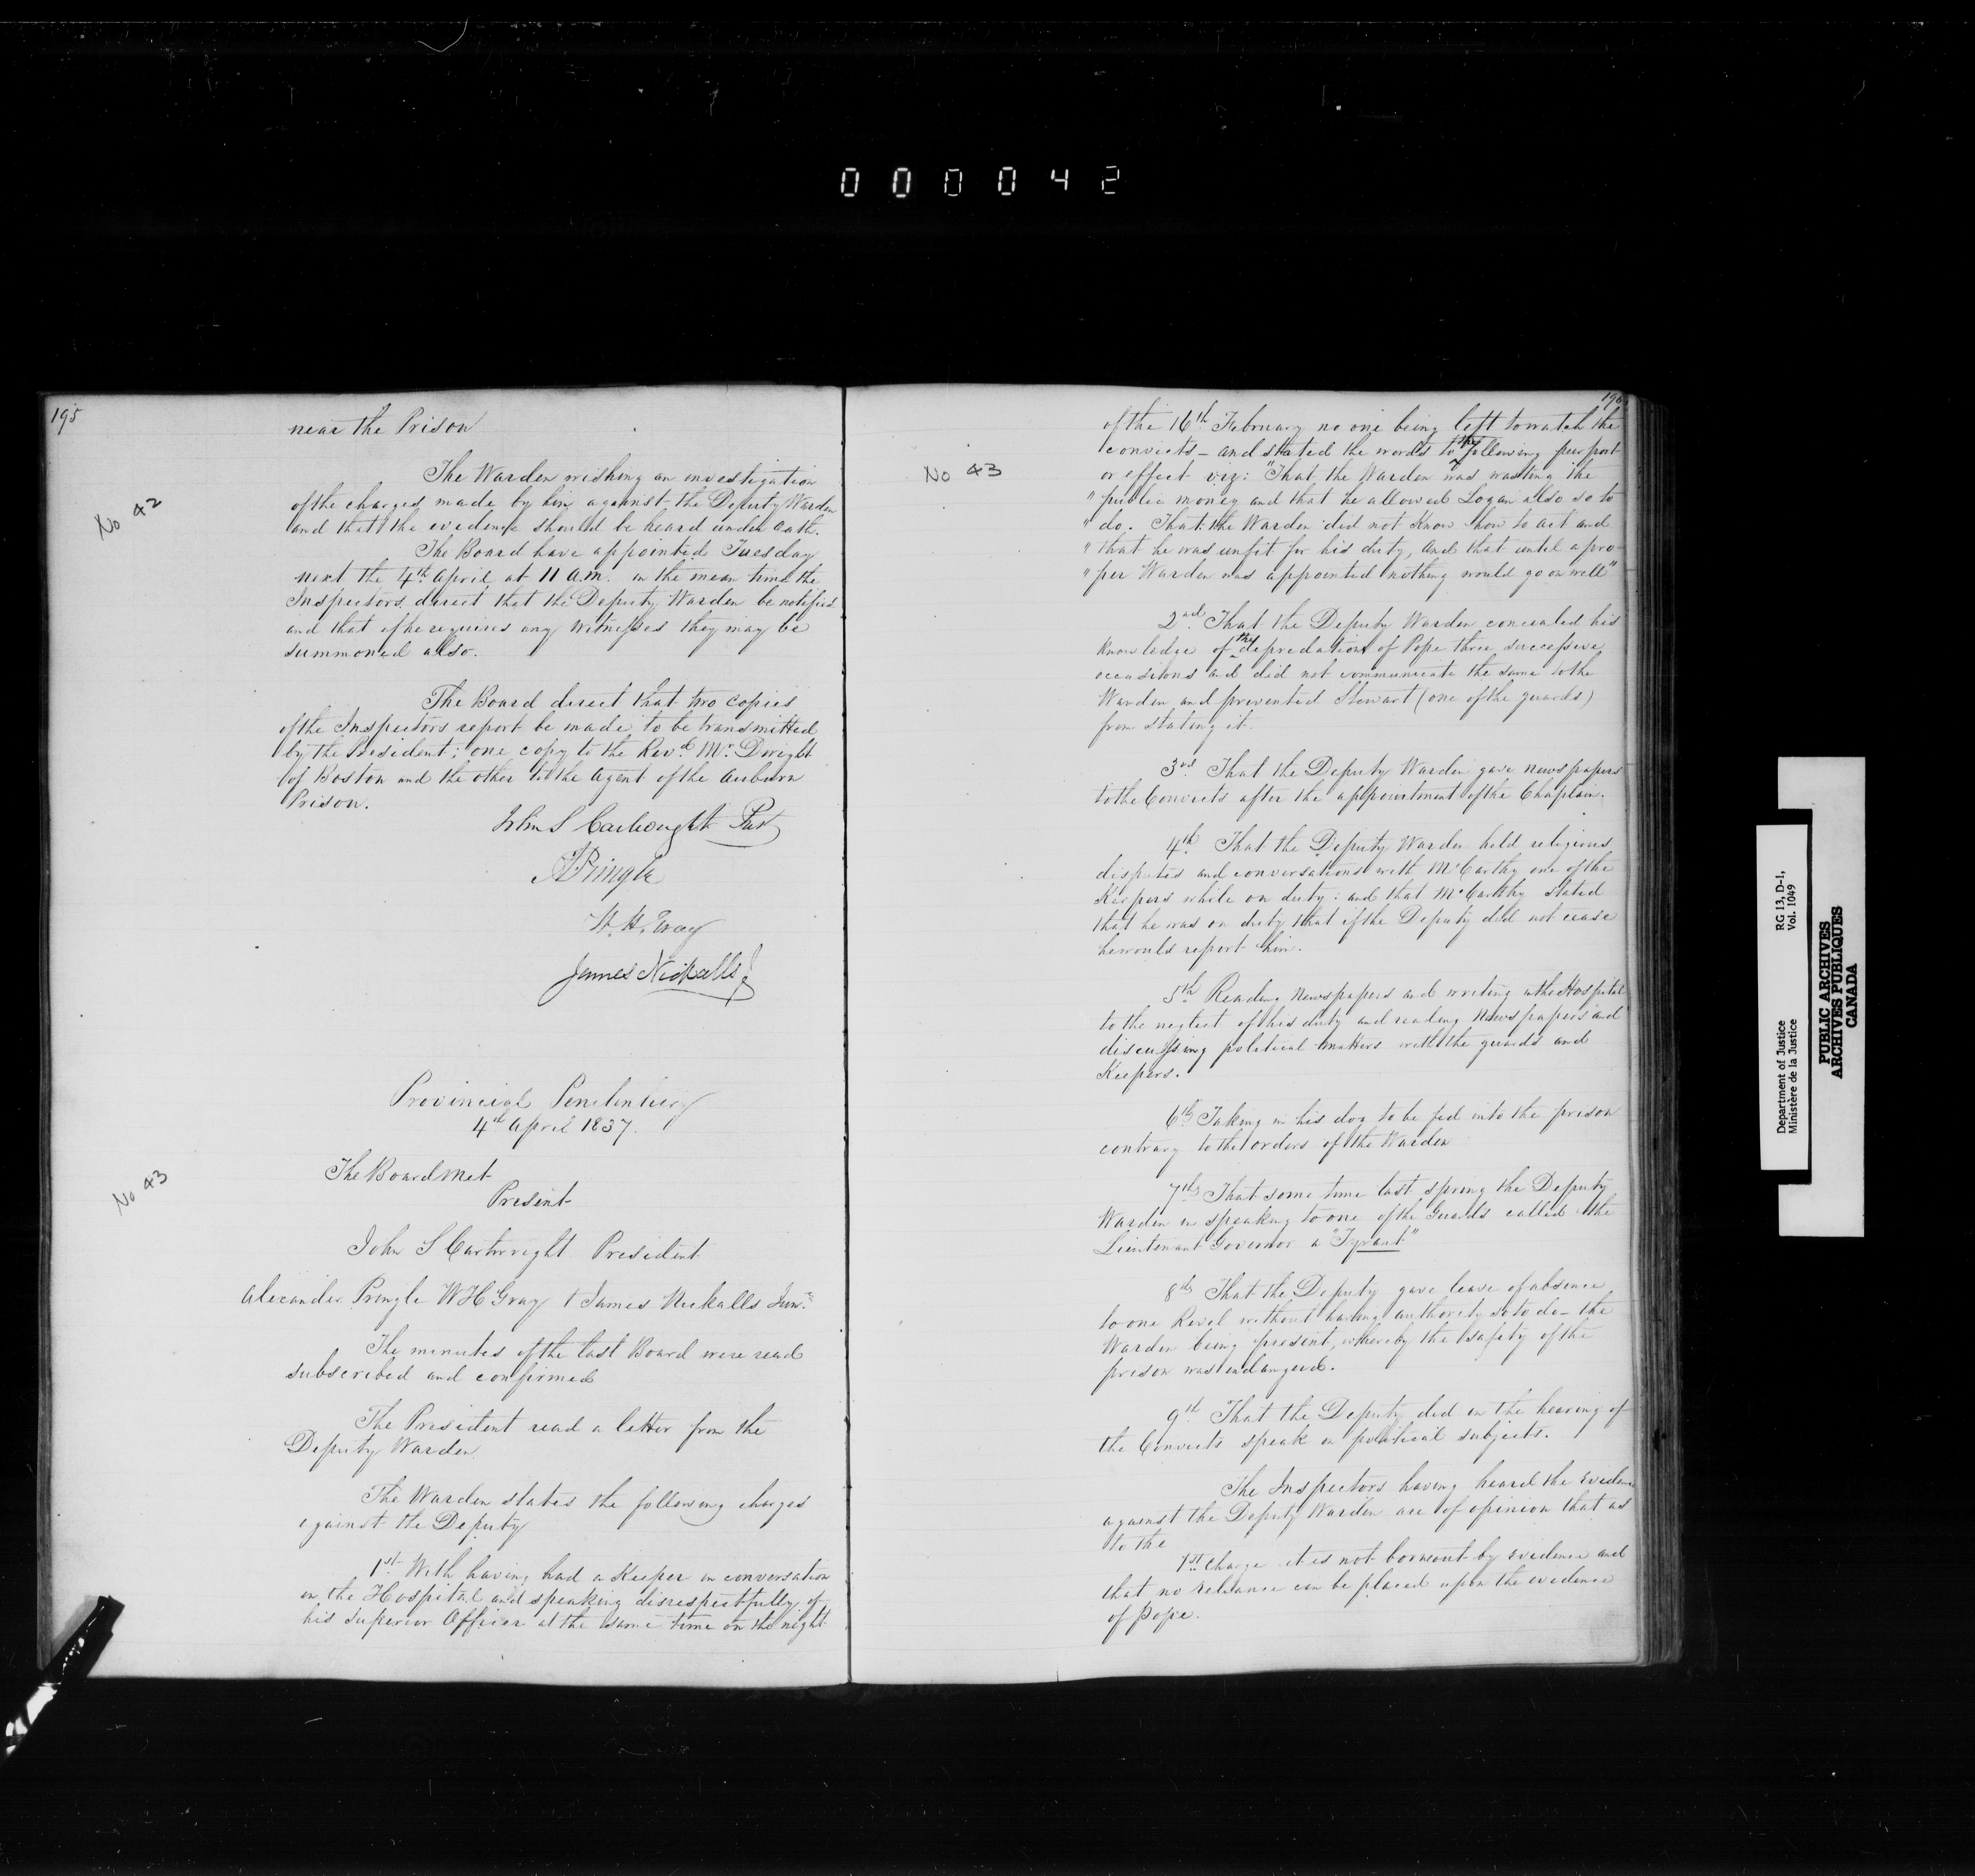 000042
195
near the Prison
No 42
The Warden wishing an investigation
of the charges made by him against the Deputy Warden
and that the evidence should be heard under oath.
The Board have appointed Tuesday
next the 4th April at 11 a.m. in the mean time the
Inspectors direct that the Deputy Warden be notified
and that if he requires any Witnesses they may be
summoned also.
The Board direct that two copies
of the Inspectors report be made to be transmitted
by the President; one copy to the Revd. Mr. Dwight
of Boston and the other to the Agent of the Auburn
Prison.
John S Cartwright Pres
A Pringle
W. H. Gray
James Nickalls J
Provincial Penitentiary
4th April 1837.
No 43
The Board met
Present
John S Cartwright President
Alexander Pringle W H Gray & James Nickalls Junr.
The minutes of the last Board were read
subscribed and confirmed
The President read a letter from the
Deputy Warden
The Warden states the following charges
against the Deputy
1st With having had a Keeper in conversation
in the Hospital and speaking disrespectfully of
his Superior Officer at the same time on the night
196
No 43
of the 16th February no one being left to watch the
convicts – and stated the words to the following purport
or effect viz: "That the Warden was wasting the
" public money and that he allowed Logan also so to
" do. That the Warden did not Know how to act and
" that he was unfit for his duty, and that until a pro-
" per Warden was appointed nothing would go on well"
2nd. That the Deputy Warden concealed his
knowledge of the depredations of Pope three successive
occasions and did not communicate the same to the
Warden and prevented Stewart (one of the guards)
from stating it.
3rd. That the Deputy Warden gave newspapers
to the Convicts after the appointment of the Chaplain.
4th. That the Deputy Warden held religious
disputes and conversations with McCarthy one of the
Keepers while on duty: and that McCarthy stated
that he was on duty that if the Deputy did not cease
he would report him.
5th. Reading Newspapers and writing in the Hospital
to the neglect of his duty and reading Newspapers and
discussing political matters with the guards and
Keepers.
6th. Taking in his dog to be fed into the prison
contrary to the orders of the Warden
7th. That some time last spring the Deputy
Warden in speaking to one of the Guards called the
Lieutenant Governor a "Tyrant"
8th That the Deputy gave leave of absence
to one Revel without having authority so to do – the
Warden being present, whereby the safety of the
prison was endangered.
9th. That the Deputy did in the hearing of
the Convicts speak on political subjects.
The Inspectors having heard the evidence
against the Deputy Warden are of opinion that as
to the
1st. Charge it is not borne out by evidence and
that no reliance can be placed upon the evidence
of Pope.
Department of Justice RG 13, D-1,
Ministère de la Justice Vol. 1049
PUBLIC ARCHIVES
ARCHIVES PUBLIQUES
CANADA